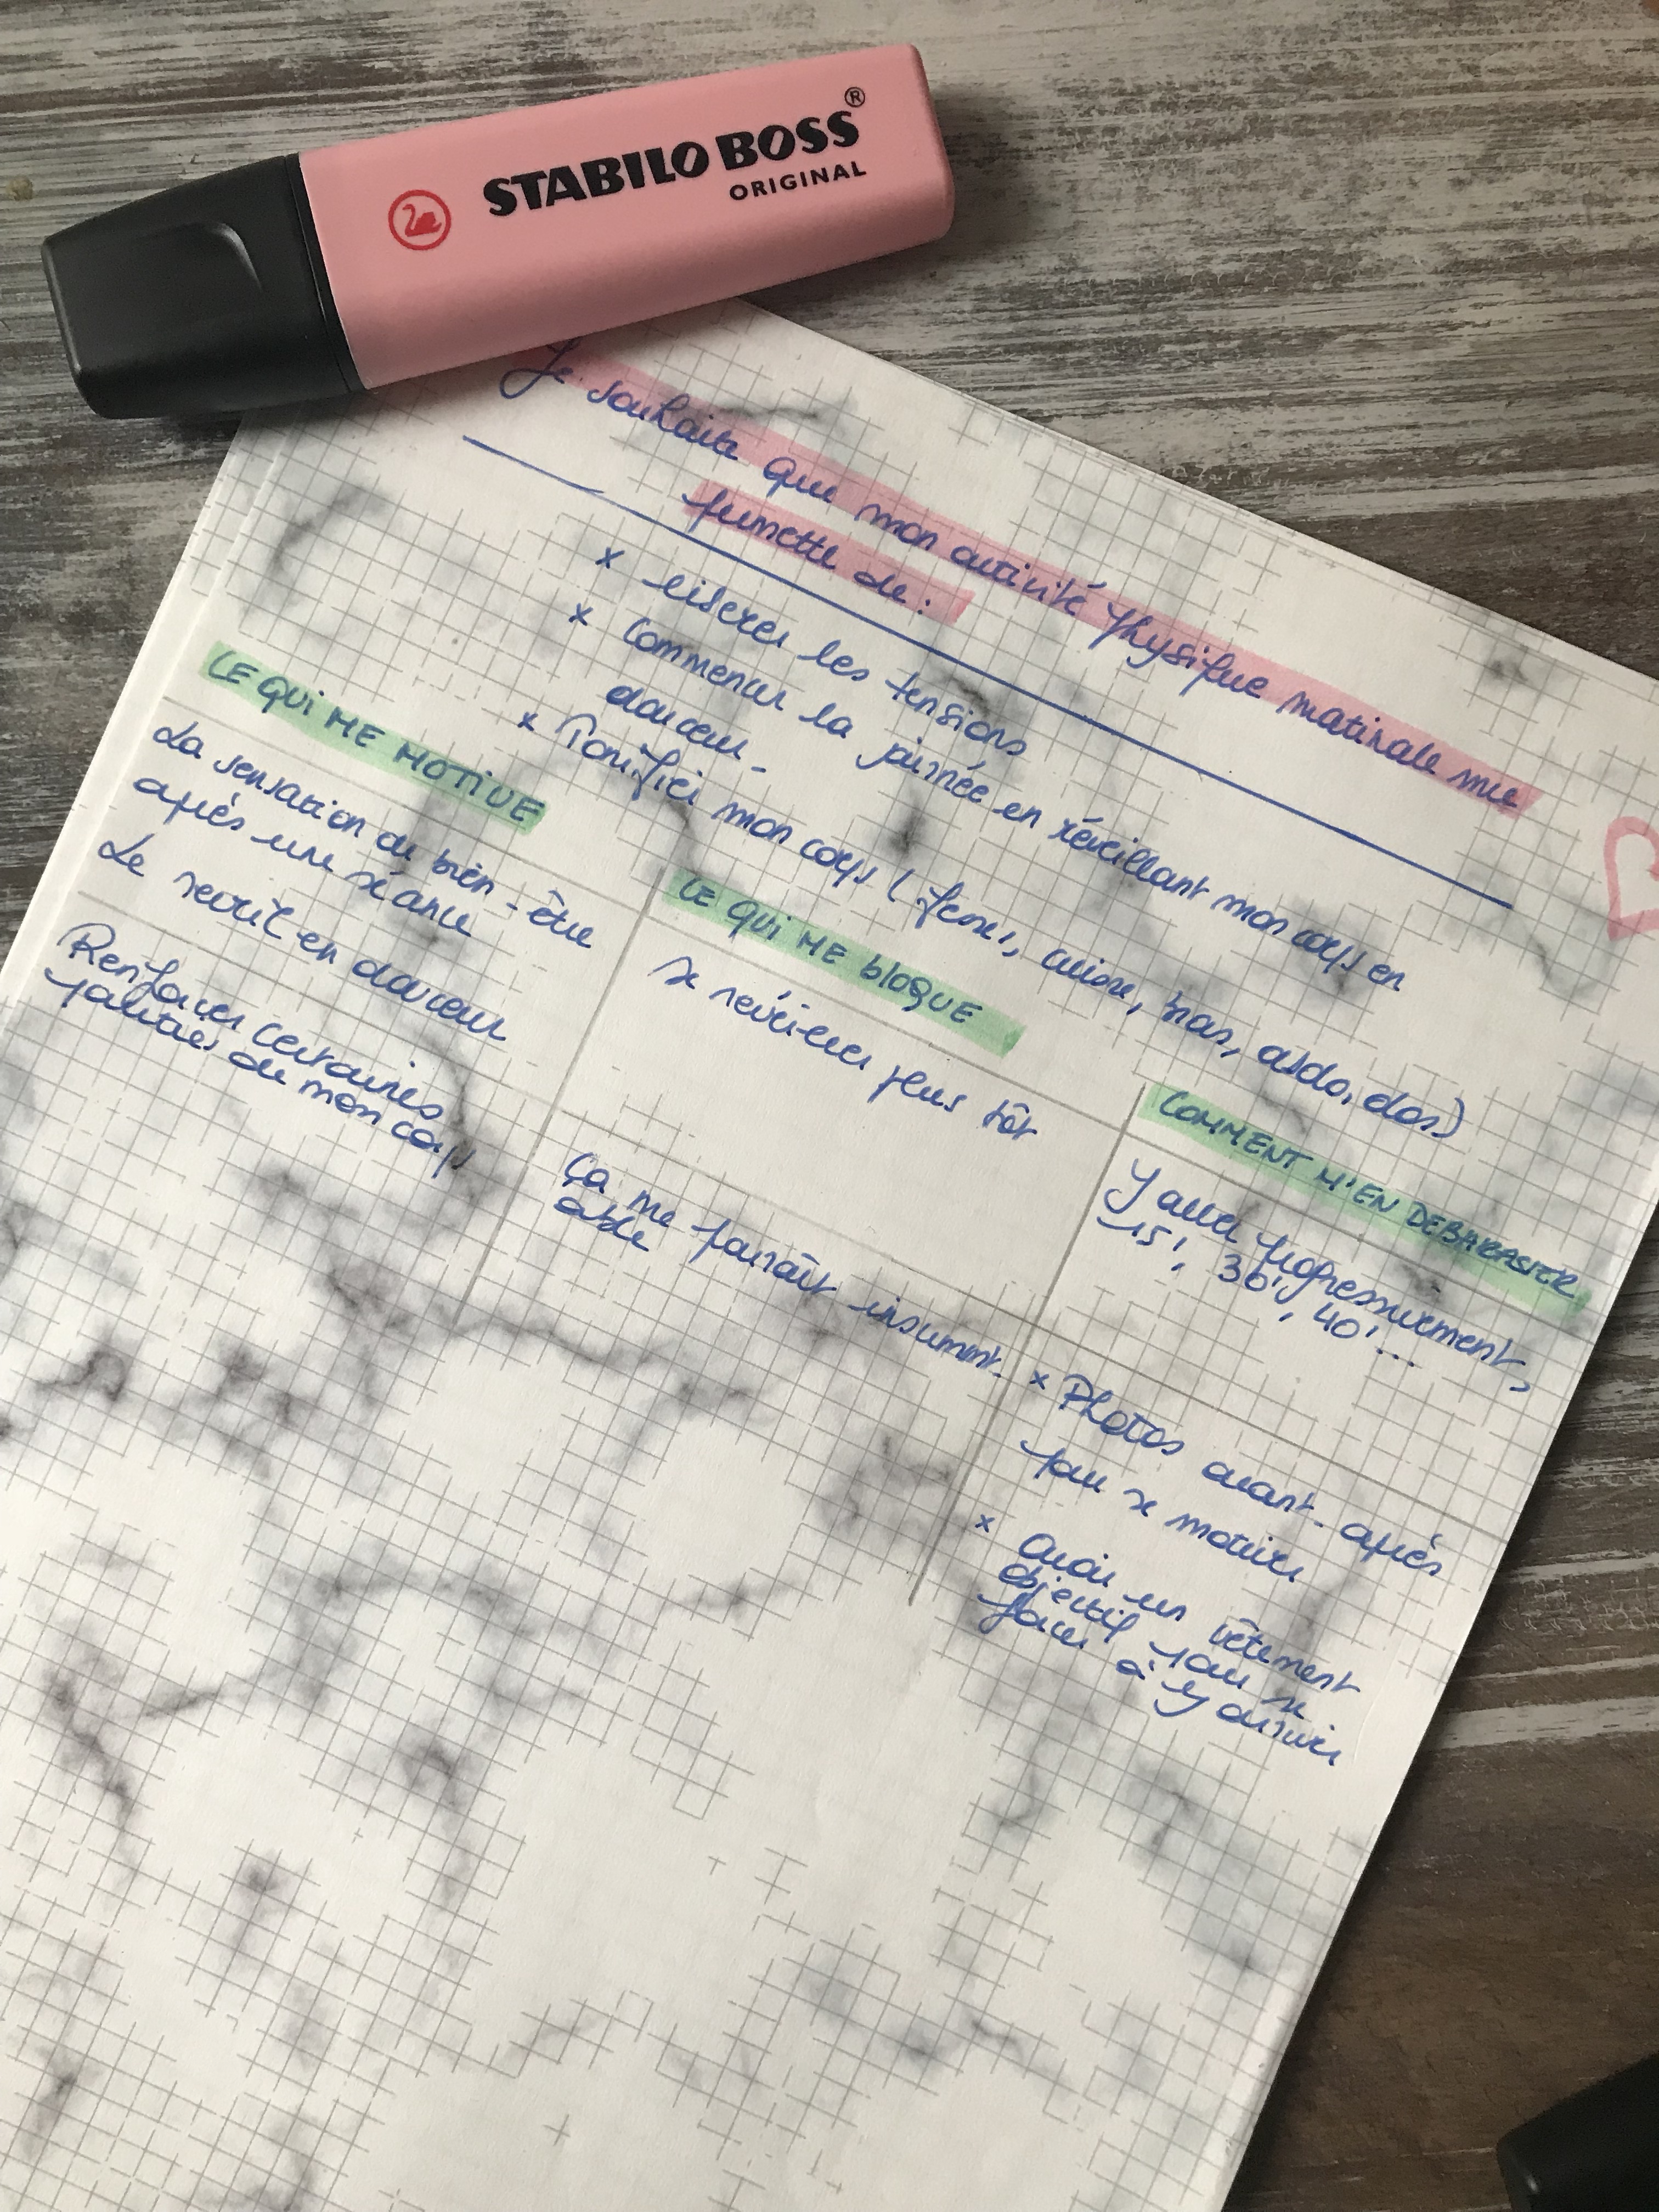 STABILO BOSS®
ORIGINAL
Je souhaite que mon activité physique matinale me
permette de :
x libérer les tensions
x Commencer la journée en réveillant mon corps en
douceur -
x Tonifier mon corps (fesses, cuisse, bras, abdo, dos)
CE QUI ME MOTIVE
La sensation de bien-être
après une séance
Le reveil en douceur
Renforcer certaines
parties de mon corps
CE QUI ME bloQUE
se réveiller plus tôt
Ça me paraît insurmont-
able
COMMENT M'EN DEBARASSER
Y aller progressivement,
15', 30', 40'...
x Photos avant-après
pour se motiver
x Avoir un vêtement
objectif pour se
forcer à y arriver